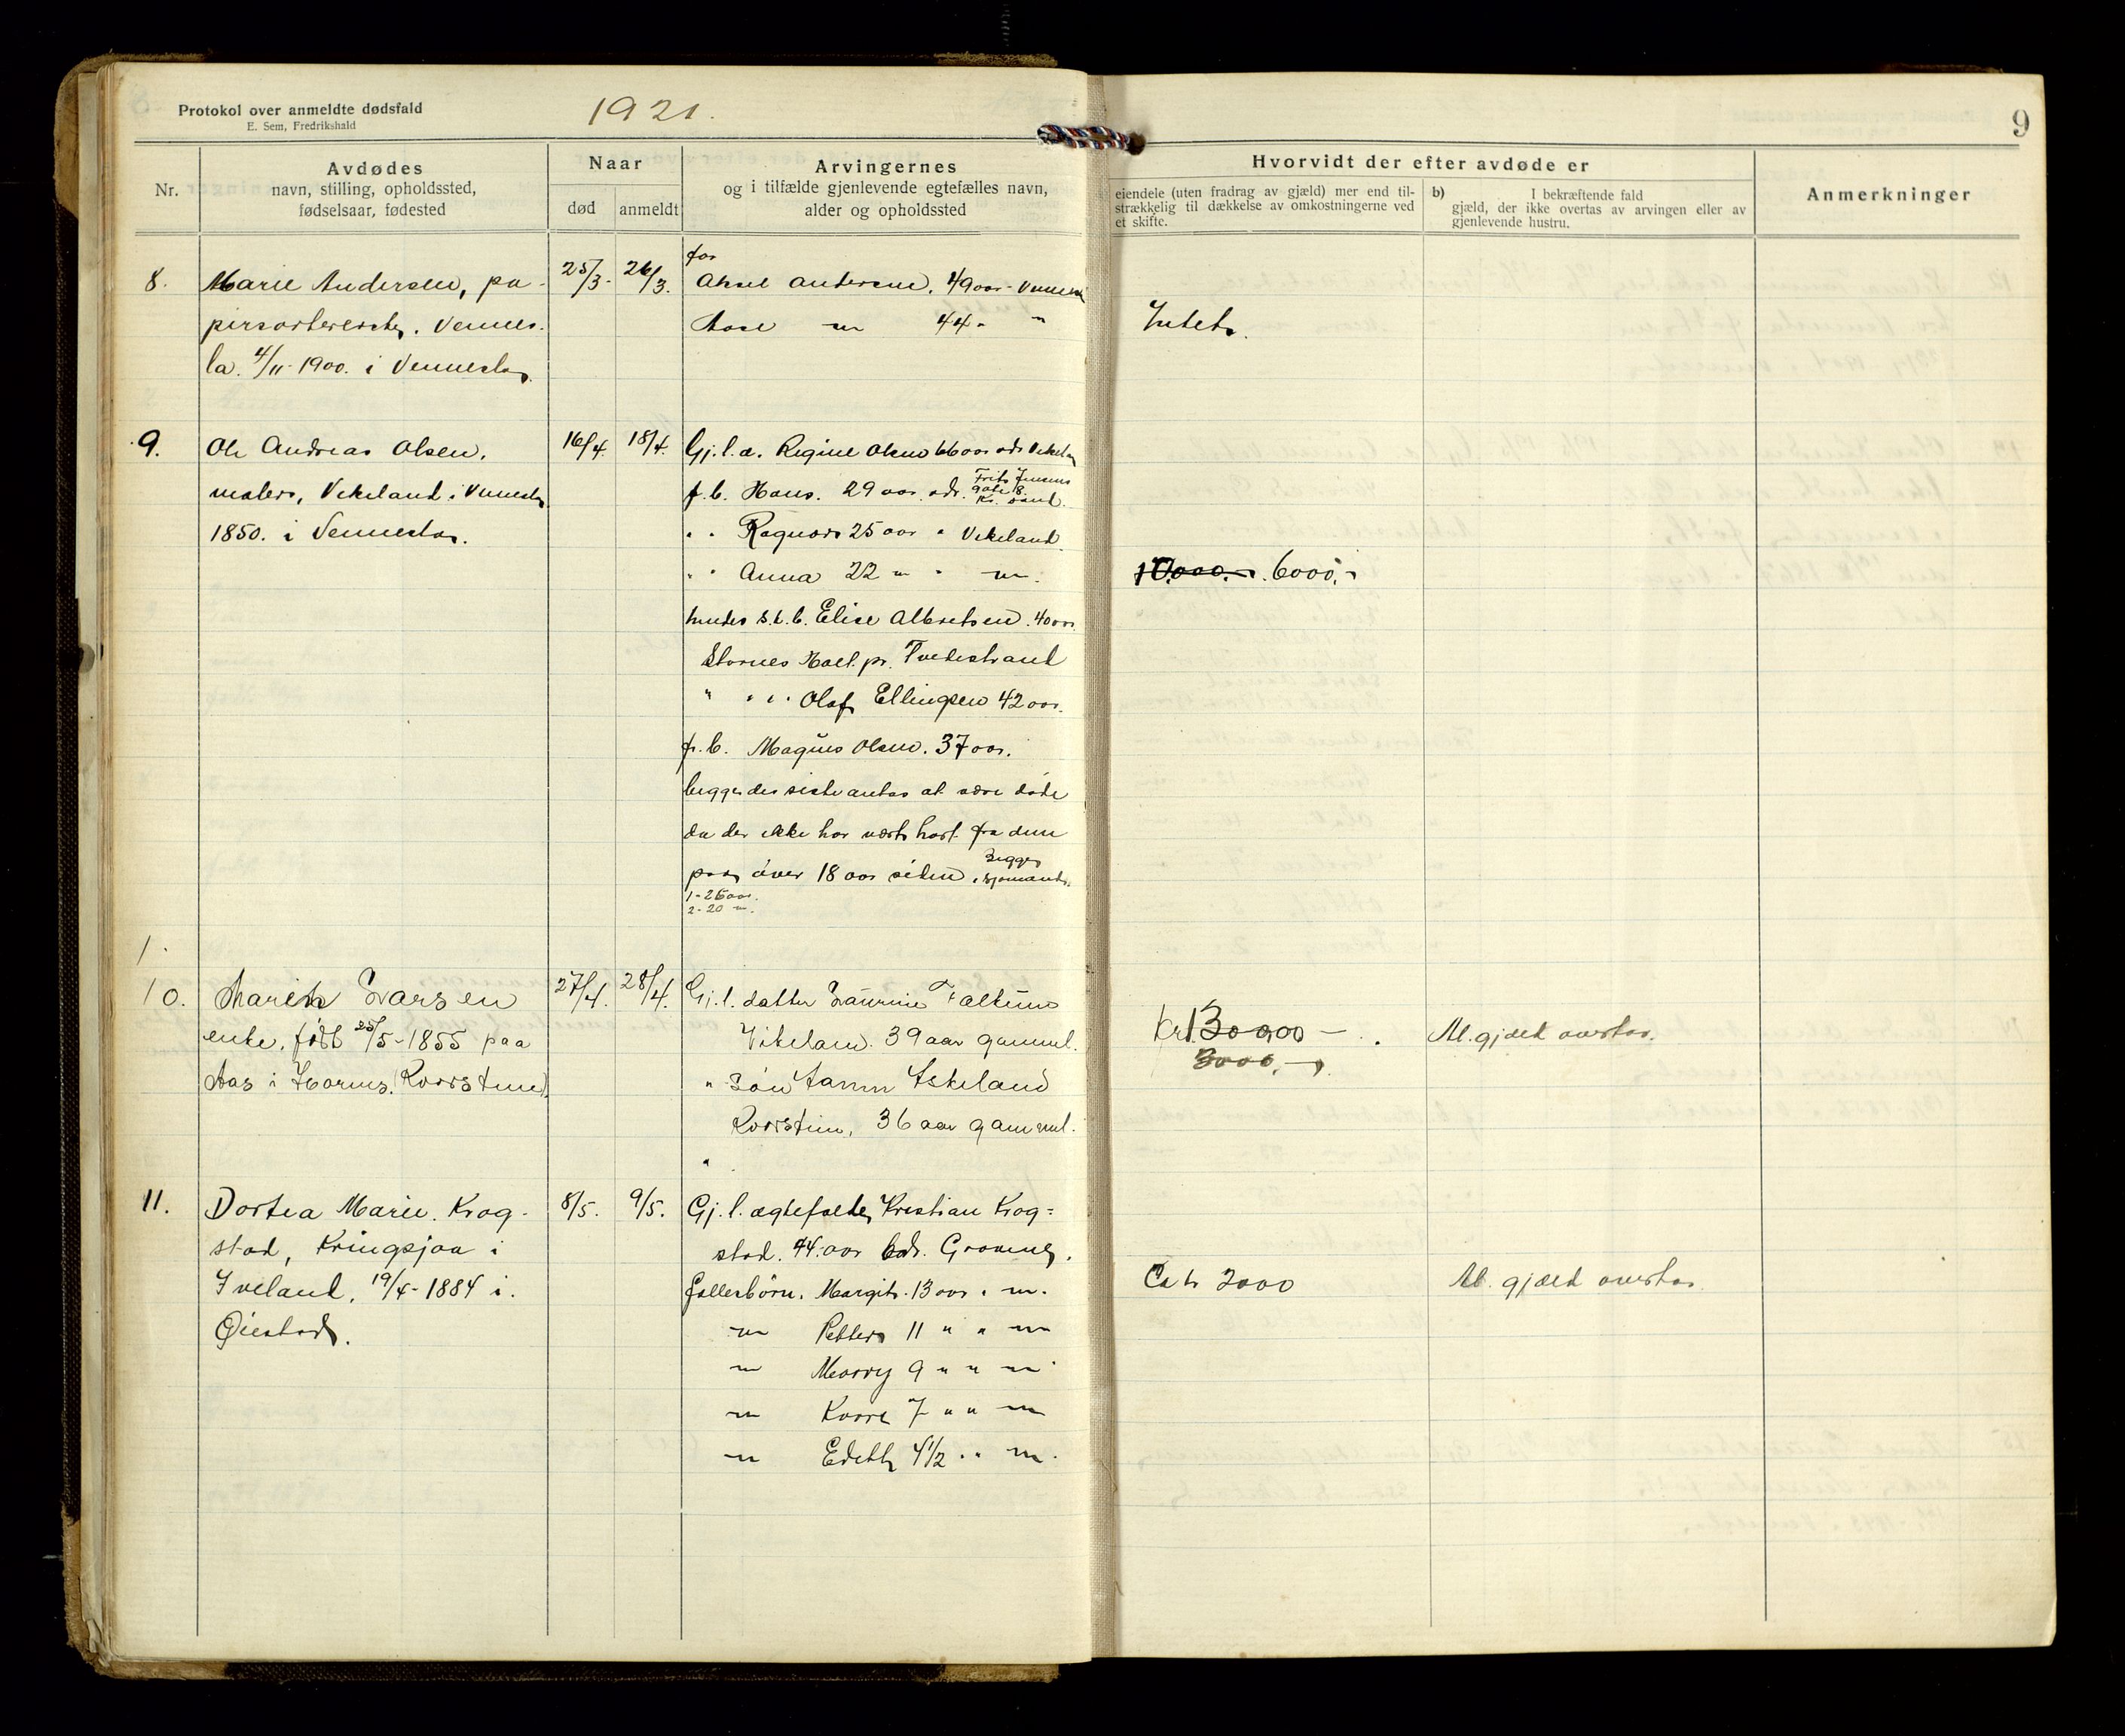 Protokol over anmeldte dødsfald
E. Sem, Fredrikshald
1921.
9
Nr.
Avdødes
navn, stilling, opholdssted,
fødselsaar, fødested
Naar
død
anmeldt
Arvingernes
og i tilfælde gjenlevende egtefælles navn,
alder og opholdssted
Hvorvidt der efter avdøde er
eiendele (uten fradrag av gjæld) mer end til-
strækkelig til dækkelse av omkostningerne ved
et skifte.
b) I bekræftende fald
gjæld, der ikke overtas av arvingen eller av
gjenlevende hustru.
Anmerkninger
8.
Marie Andersen, pa-
pirsortererske, Vennes-
la. 4/11-1900. i Vennesla.
25/3-
26/3.
far
Aksel Andersen. 49 aar - Vennesla
Aase — 44 " "
Intet.
9.
Ole Andreas Olsen,
maler, Vikeland i Vennesla
1850. i Vennesla.
16/4.
18/4.
Gj. l. æ. Regine Olsen 66 aar adr Vikeland
f. b. Hans. 29 aar. adr. Frits Jensens
gate 8
Kr. sand.
" " Ragnar 25 aar " Vikeland.
" " Anna 22 — " —.
hendes s.k.b. Elise Albretsen. 40 aar.
Stornes Holt pr. Tvedestrand
" " " " Olaf Ellingsen 42 aar.
f. b. Magnus Olsen. 37 aar.
begge de siste antas at være døde
da der ikke har vært hørt fra dem
paa over 18 aar siden. Begge
sjømænd.
1-26 aar.
2-20 —.
10.000.- 6000,-
1.
10.
Maren Larsen
enke. født 25/5-1855 paa
Aas i Hornes. (Roorstene).
27/4.
28/4.
Gj. l. datter Laurine
Vikeland. 39 aar gammel.
" Søn Iskeland
36 aar gammel.
"
Kr 13000 -
3000,-
Al. gjæld overtas.
11.
Dortea Marie. Krog-
stad, Kringsjaa i
Iveland, 19/4-1884 i.
Øiestad.
8/5.
9/5.
Gj. l. ægtefælle, Kristian Krog=
stad. 44. aar adr.
fællesbørn. Margit. 13 aar. " —.
— Petter 11 " " —
— Marry 9 " " —
— Kaare 7 " " —
— Edith 4 1/2 " " —.
Ca kr 2000
Al. gjæld overtas.